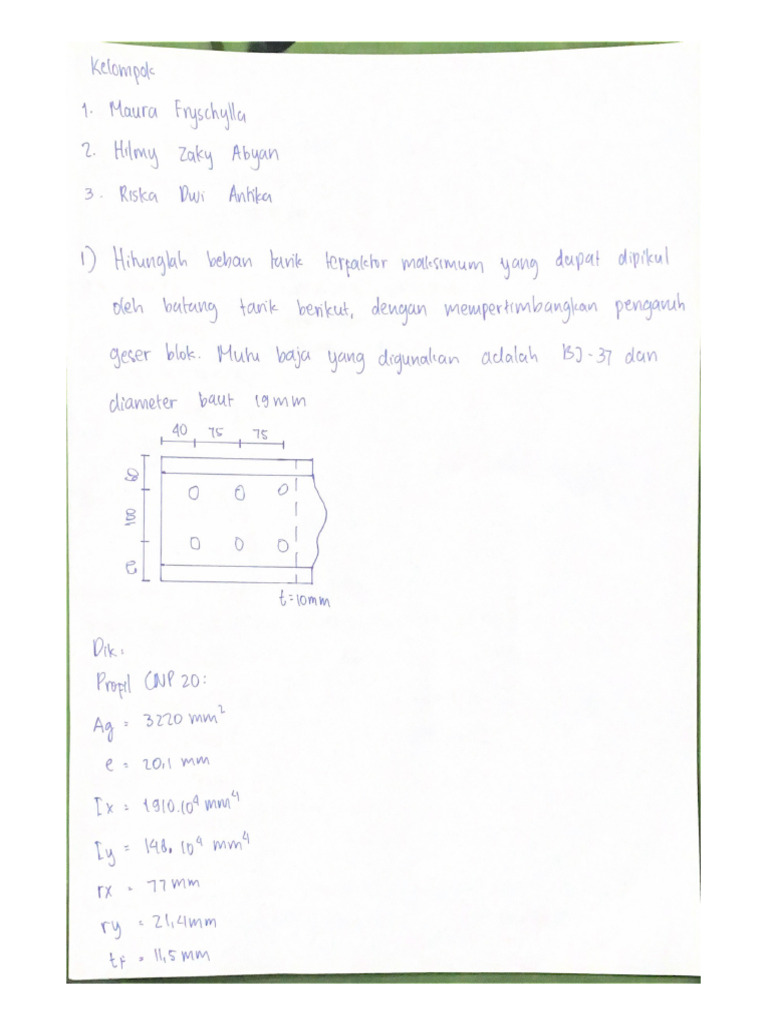 Kelompok
1. Maura Fryschylla
2. Hilmy Zaky Abyan
3. Riska Dwi Antika
1) Hitunglah beban tarik terfaktor maksimum yang dapat dipikul
oleh batang tarik berikut, dengan mempertimbangkan pengaruh
geser blok. Mutu baja yang digunakan adalah BJ-37 dan
diameter baut 19 mm
40 75 75
t=10mm
Dik:
Profil CNP 20:
Ag = 3220 mm²
e = 20,1 mm
Ix = 1910.10⁴ mm⁴
Iy = 148.10⁴ mm⁴
rx = 77 mm
ry = 21,4 mm
tF = 11,5 mm